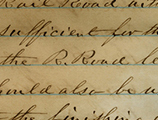 Rail Road with
sufficient for th
the R. Road
ould also be u
t the finishing